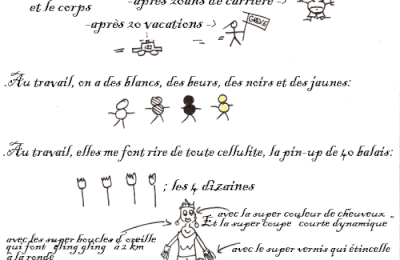 et le corps
-après 20ans de carrière ->
-après 20 vacations ->
.Au travail, on a des blancs, des beurs, des noirs et des jaunes:
.Au travail, elles me font rire de toute cellulite, la pin-up de 40 balais:
; les 4 dizaines
avec la super couleur de cheuveux
Et la super coupe courte dynamique "
avec les super boucles d'oreille
qui font gling gling à 2 km
à la ronde
avec le super vernis qui étincelle